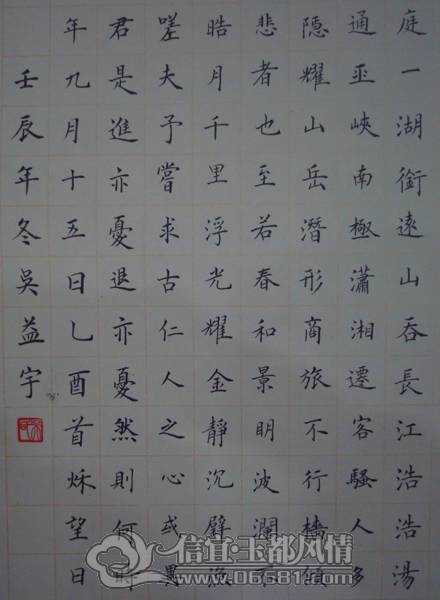 庭一湖銜遠山吞長江浩浩湯
通巫峽南極瀟湘遷客騷人多
隱耀山岳潛形商旅不行檣傾
悲者也至若春和景明波瀾不
皓月千里浮光耀金靜沉璧漁
嗟夫予嘗求古仁人之心或異
君是進亦憂退亦憂然則何時
年九月十五日乙酉首秌望日
壬辰年冬吳益宇
信宜·玉都风情
www.06681.com